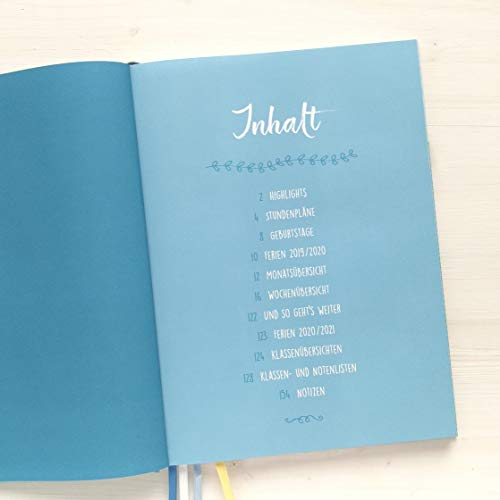 Inhalt
2 HIGHLIGHTS
4 STUNDENPLÄNE
8 GEBURTSTAGE
10 FERIEN 2019/2020
12 MONATSÜBERSICHT
16 WOCHENÜBERSICHT
122 UND SO GEHT'S WEITER
123 FERIEN 2020/2021
124 KLASSENÜBERSICHTEN
128 KLASSEN- UND NOTENLISTEN
154 NOTIZEN